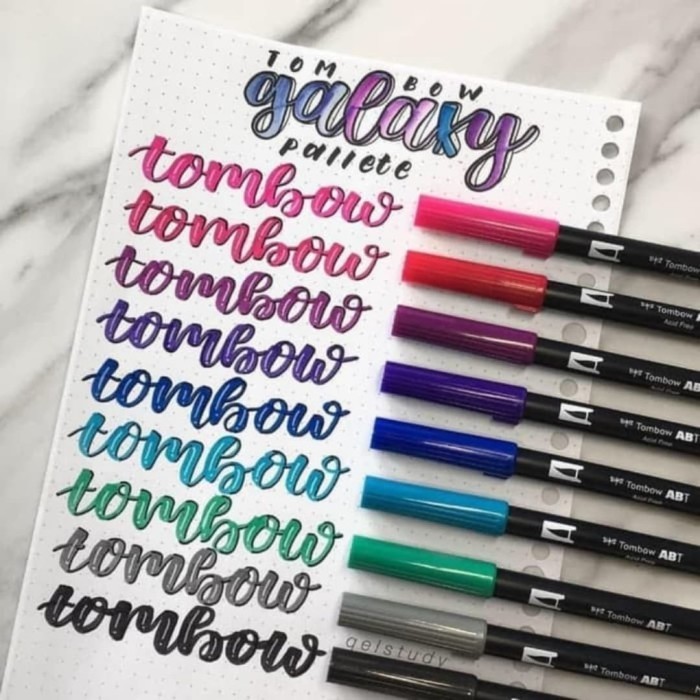 TOM BOW
galaxy
pallete
tombow
tombow
tombow
tombow
tombow
tombow
tombow
tombow
tombow
Tombow
Tombow AB
Acid Free
Tombow AB
Acid Free
Tombow ABT
Acid Free
Tombow ABT
Acid Free
Tombow ABT
Acid Free
Tombow ABT
Tombow ABT
qelstudy